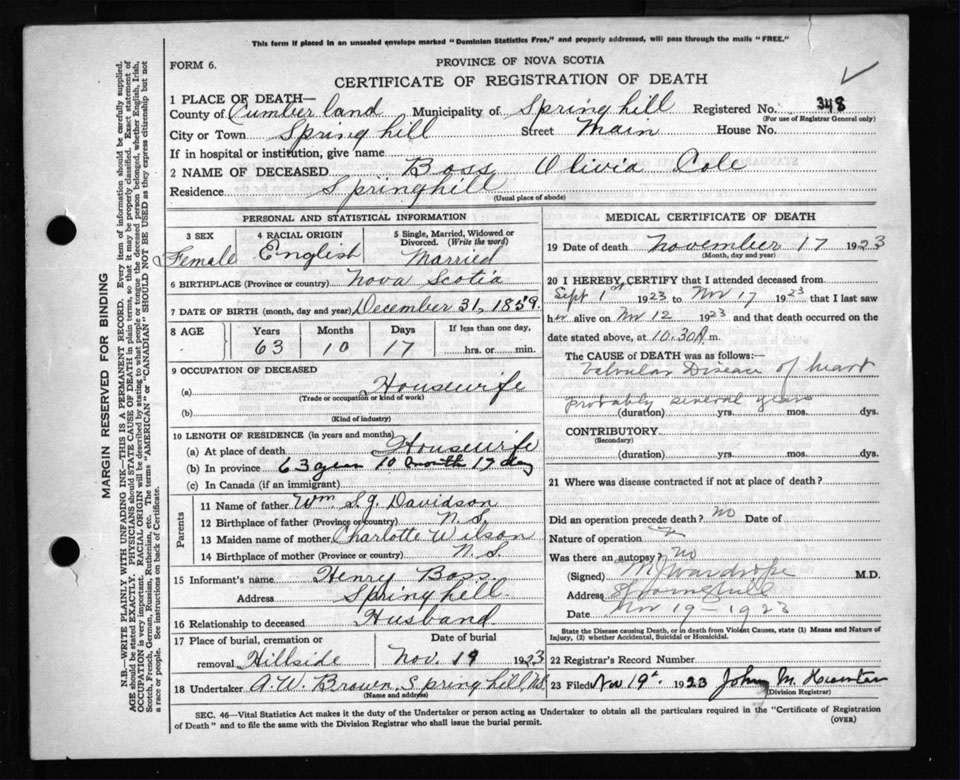 This form if placed in an unsealed envelope marked "Dominion Statistics Free," and properly addressed, will pass through the mails "FREE."
FORM 6.
PROVINCE OF NOVA SCOTIA
CERTIFICATE OF REGISTRATION OF DEATH
1 PLACE OF DEATH—
County of Cumberland Municipality of Springhill Registered No. 348
(For use of Registrar General only)
City or Town Springhill Street Main House No.
If in hospital or institution, give name
2 NAME OF DECEASED Boss Olivia Cole
Residence Springhill
(Usual place of abode)
PERSONAL AND STATISTICAL INFORMATION
3 SEX 4 RACIAL ORIGIN 5 Single, Married, Widowed or
Divorced. (Write the word)
Female English Married
6 BIRTHPLACE (Province or country) Nova Scotia
7 DATE OF BIRTH (month, day and year) December 31, 1859.
8 AGE Years Months Days If less than one day,
63 10 17 hrs. or min.
9 OCCUPATION OF DECEASED
(a) Housewife
(Trade or occupation or kind of work)
(b)
(Kind of industry)
10 LENGTH OF RESIDENCE (in years and months)
(a) At place of death Housewife
(b) In province 63 year 10 month 17 day
(c) In Canada (if an immigrant)
Parents
11 Name of father Wm. S.G. Davidson
12 Birthplace of father (Province or country) N.S.
13 Maiden name of mother Charlotte Wilson
14 Birthplace of mother (Province or country) N.S.
15 Informant's name Henry Boss
Address Springhill.
16 Relationship to deceased Husband
17 Place of burial, cremation or Date of burial
removal Hillside Nov. 19 1923
18 Undertaker A.W. Brown, Springhill, N.S.
(Name and address)
MEDICAL CERTIFICATE OF DEATH
19 Date of death November 17 1923
(Month, day and year)
20 I HEREBY CERTIFY that I attended deceased from
Sept 1st 1923 to Nov 17 1923 that I last saw
her alive on Nov 12 1923 and that death occurred on the
date stated above, at 10.30 A. m.
The CAUSE of DEATH was as follows:
Valvular Disease of heart
probably several years
(duration) yrs. mos. dys.
CONTRIBUTORY
(Secondary)
(duration) yrs. mos. dys.
21 Where was disease contracted if not at place of death?
Did an operation precede death? no Date of
Nature of operation
Was there an autopsy? No
(Signed) M. Wardrope M.D.
Address Springhill
Date Nov 19 - 1923
State the Disease causing Death, or in death from Violent Causes, state (1) Means and Nature of
Injury, (2) whether Accidental, Suicidal or Homicidal.
22 Registrar's Record Number
23 Filed Nov 19th 1923 John M.
(Division Registrar)
SEC. 46—Vital Statistics Act makes it the duty of the Undertaker or person acting as Undertaker to obtain all the particulars required in the "Certificate of Registration
of Death" and to file the same with the Division Registrar who shall issue the burial permit.
(OVER)
MARGIN RESERVED FOR BINDING
N.B.—WRITE PLAINLY WITH UNFADING INK—THIS IS A PERMANENT RECORD. Every item of information should be carefully supplied.
AGE should be stated EXACTLY. PHYSICIANS should STATE CAUSE OF DEATH in plain terms, so that it may be properly classified. Exact statement of
OCCUPATION is very important. RACIAL ORIGIN will be described by stating to what people or tongue the deceased person belonged, whether English, Irish,
Scotch, French, German, Russian, Ruthenian, etc. The terms "AMERICAN" or "CANADIAN" SHOULD NOT BE USED as they express citizenship but not
a race or people. See instructions on back of Certificate.